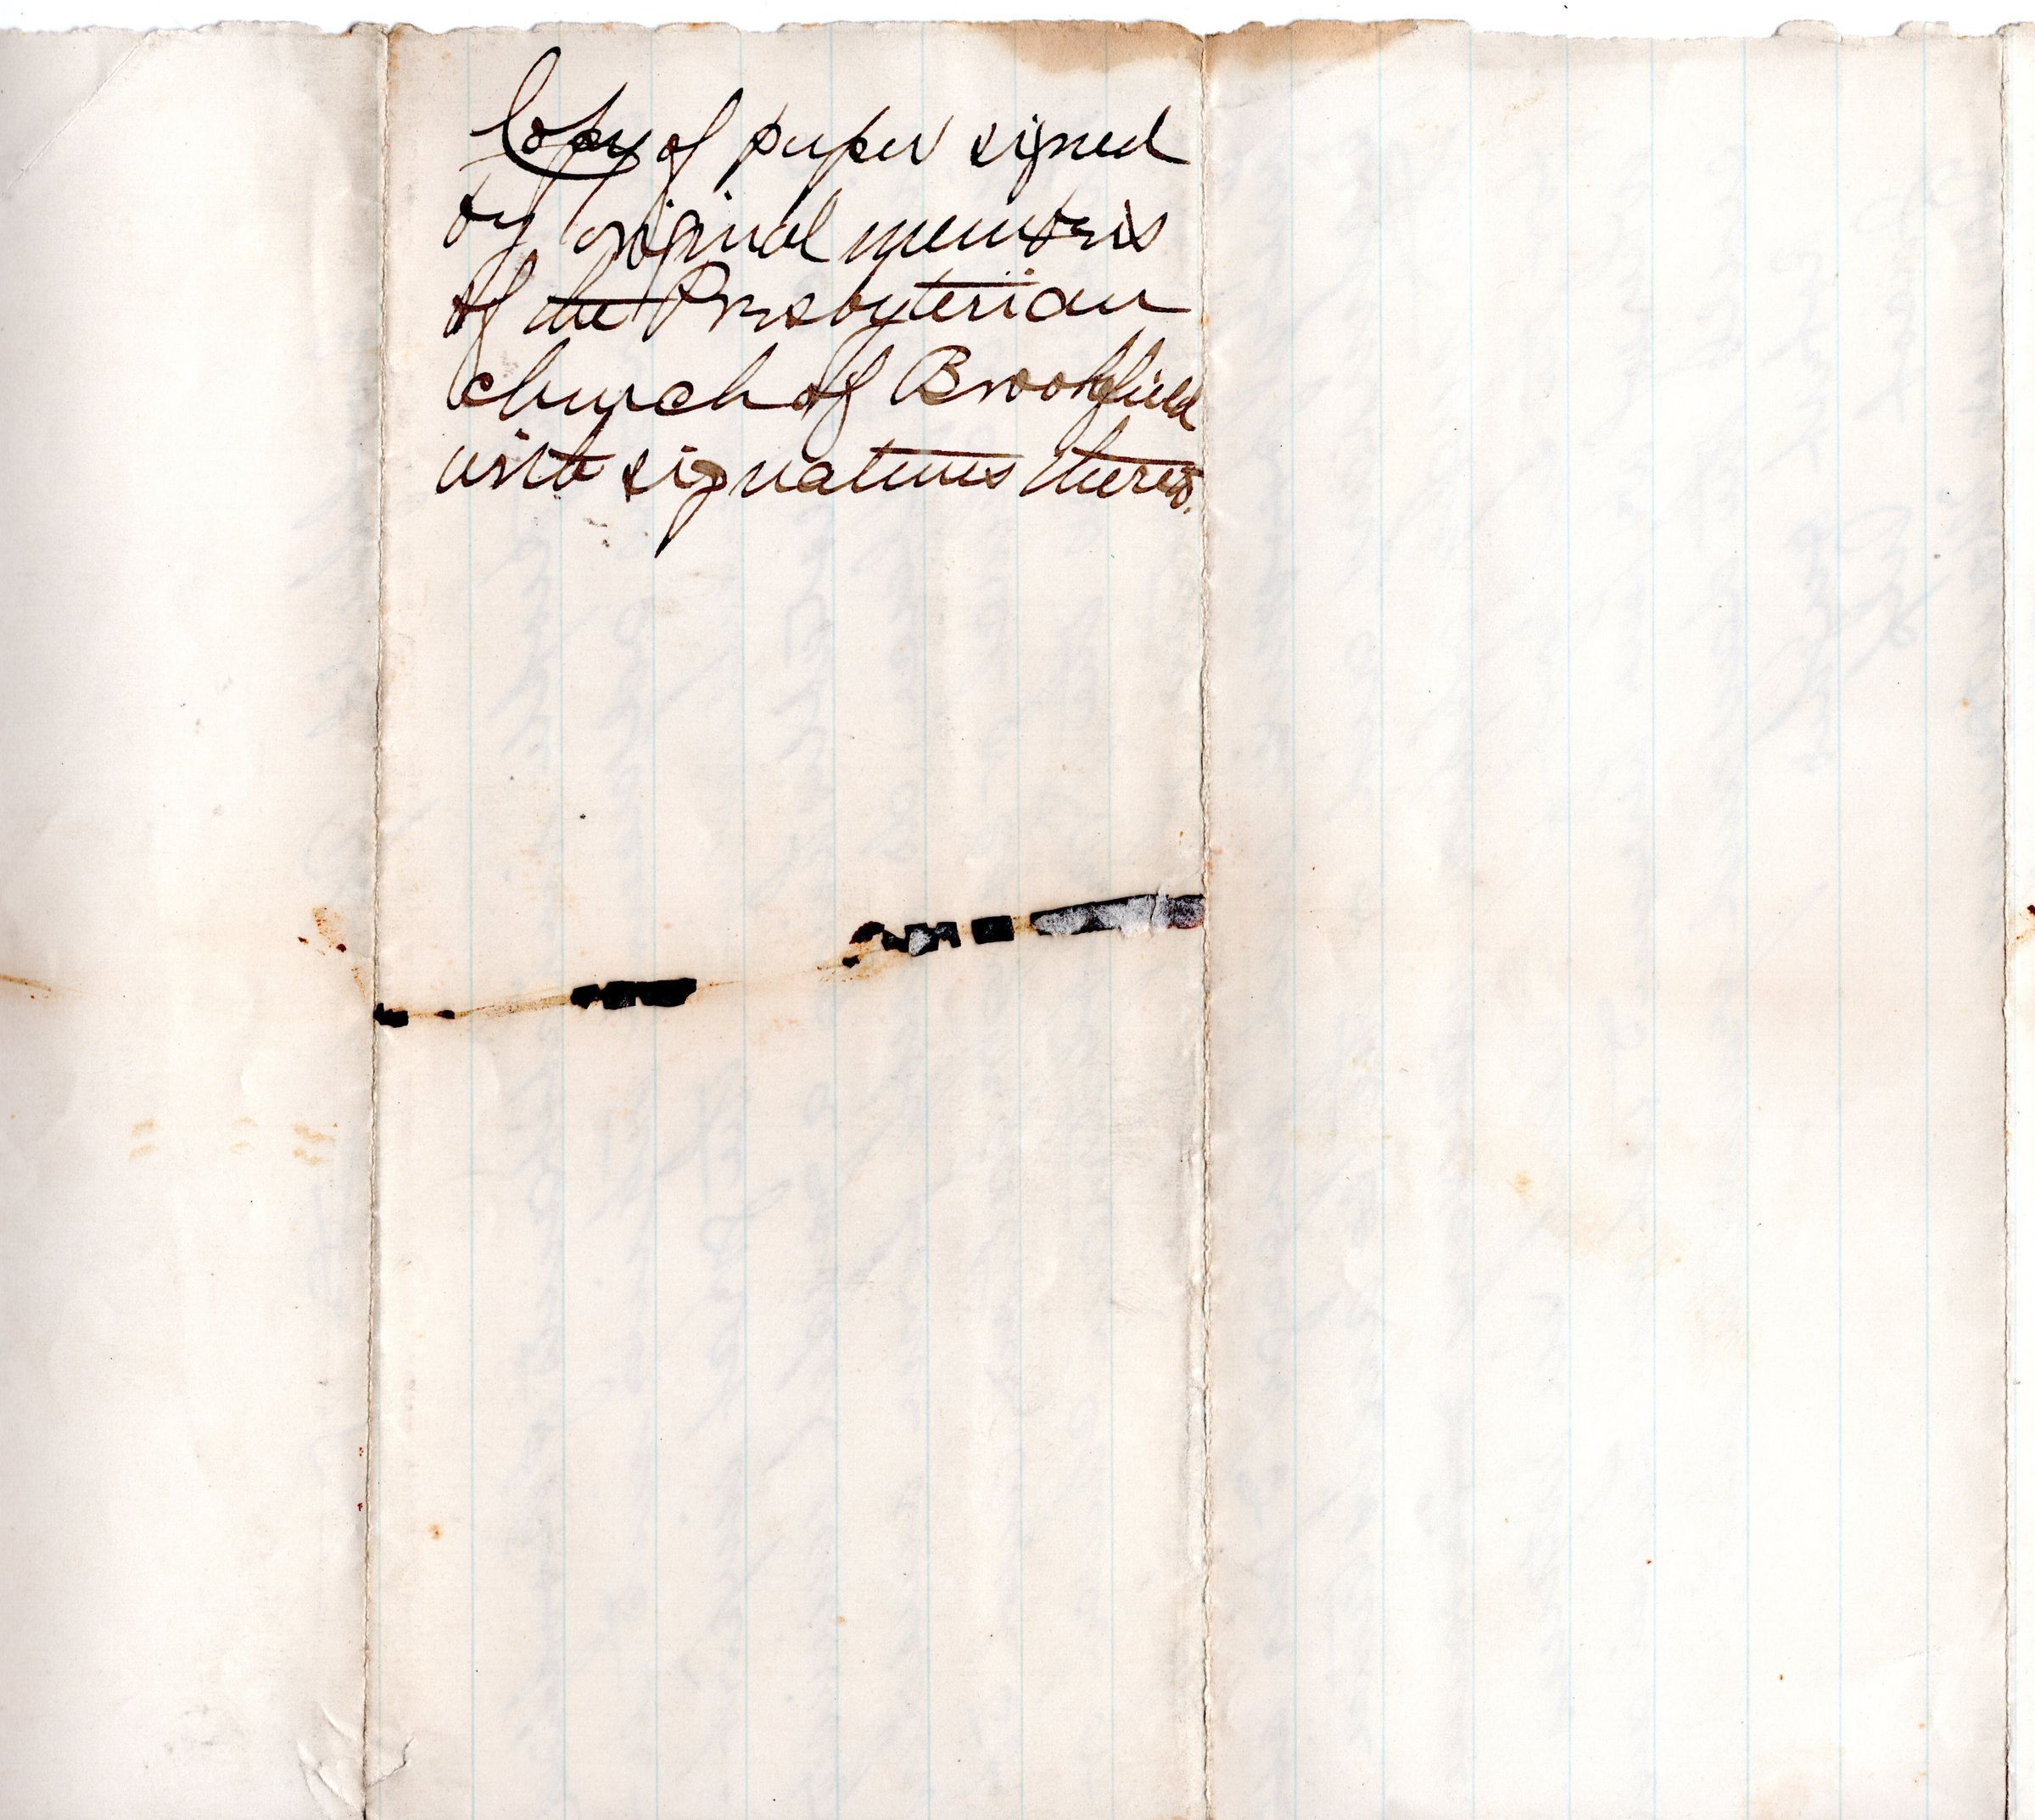 Copy of paper signed
by original members
of the Presbyterian
church of Brookfield
with signatures thereto.